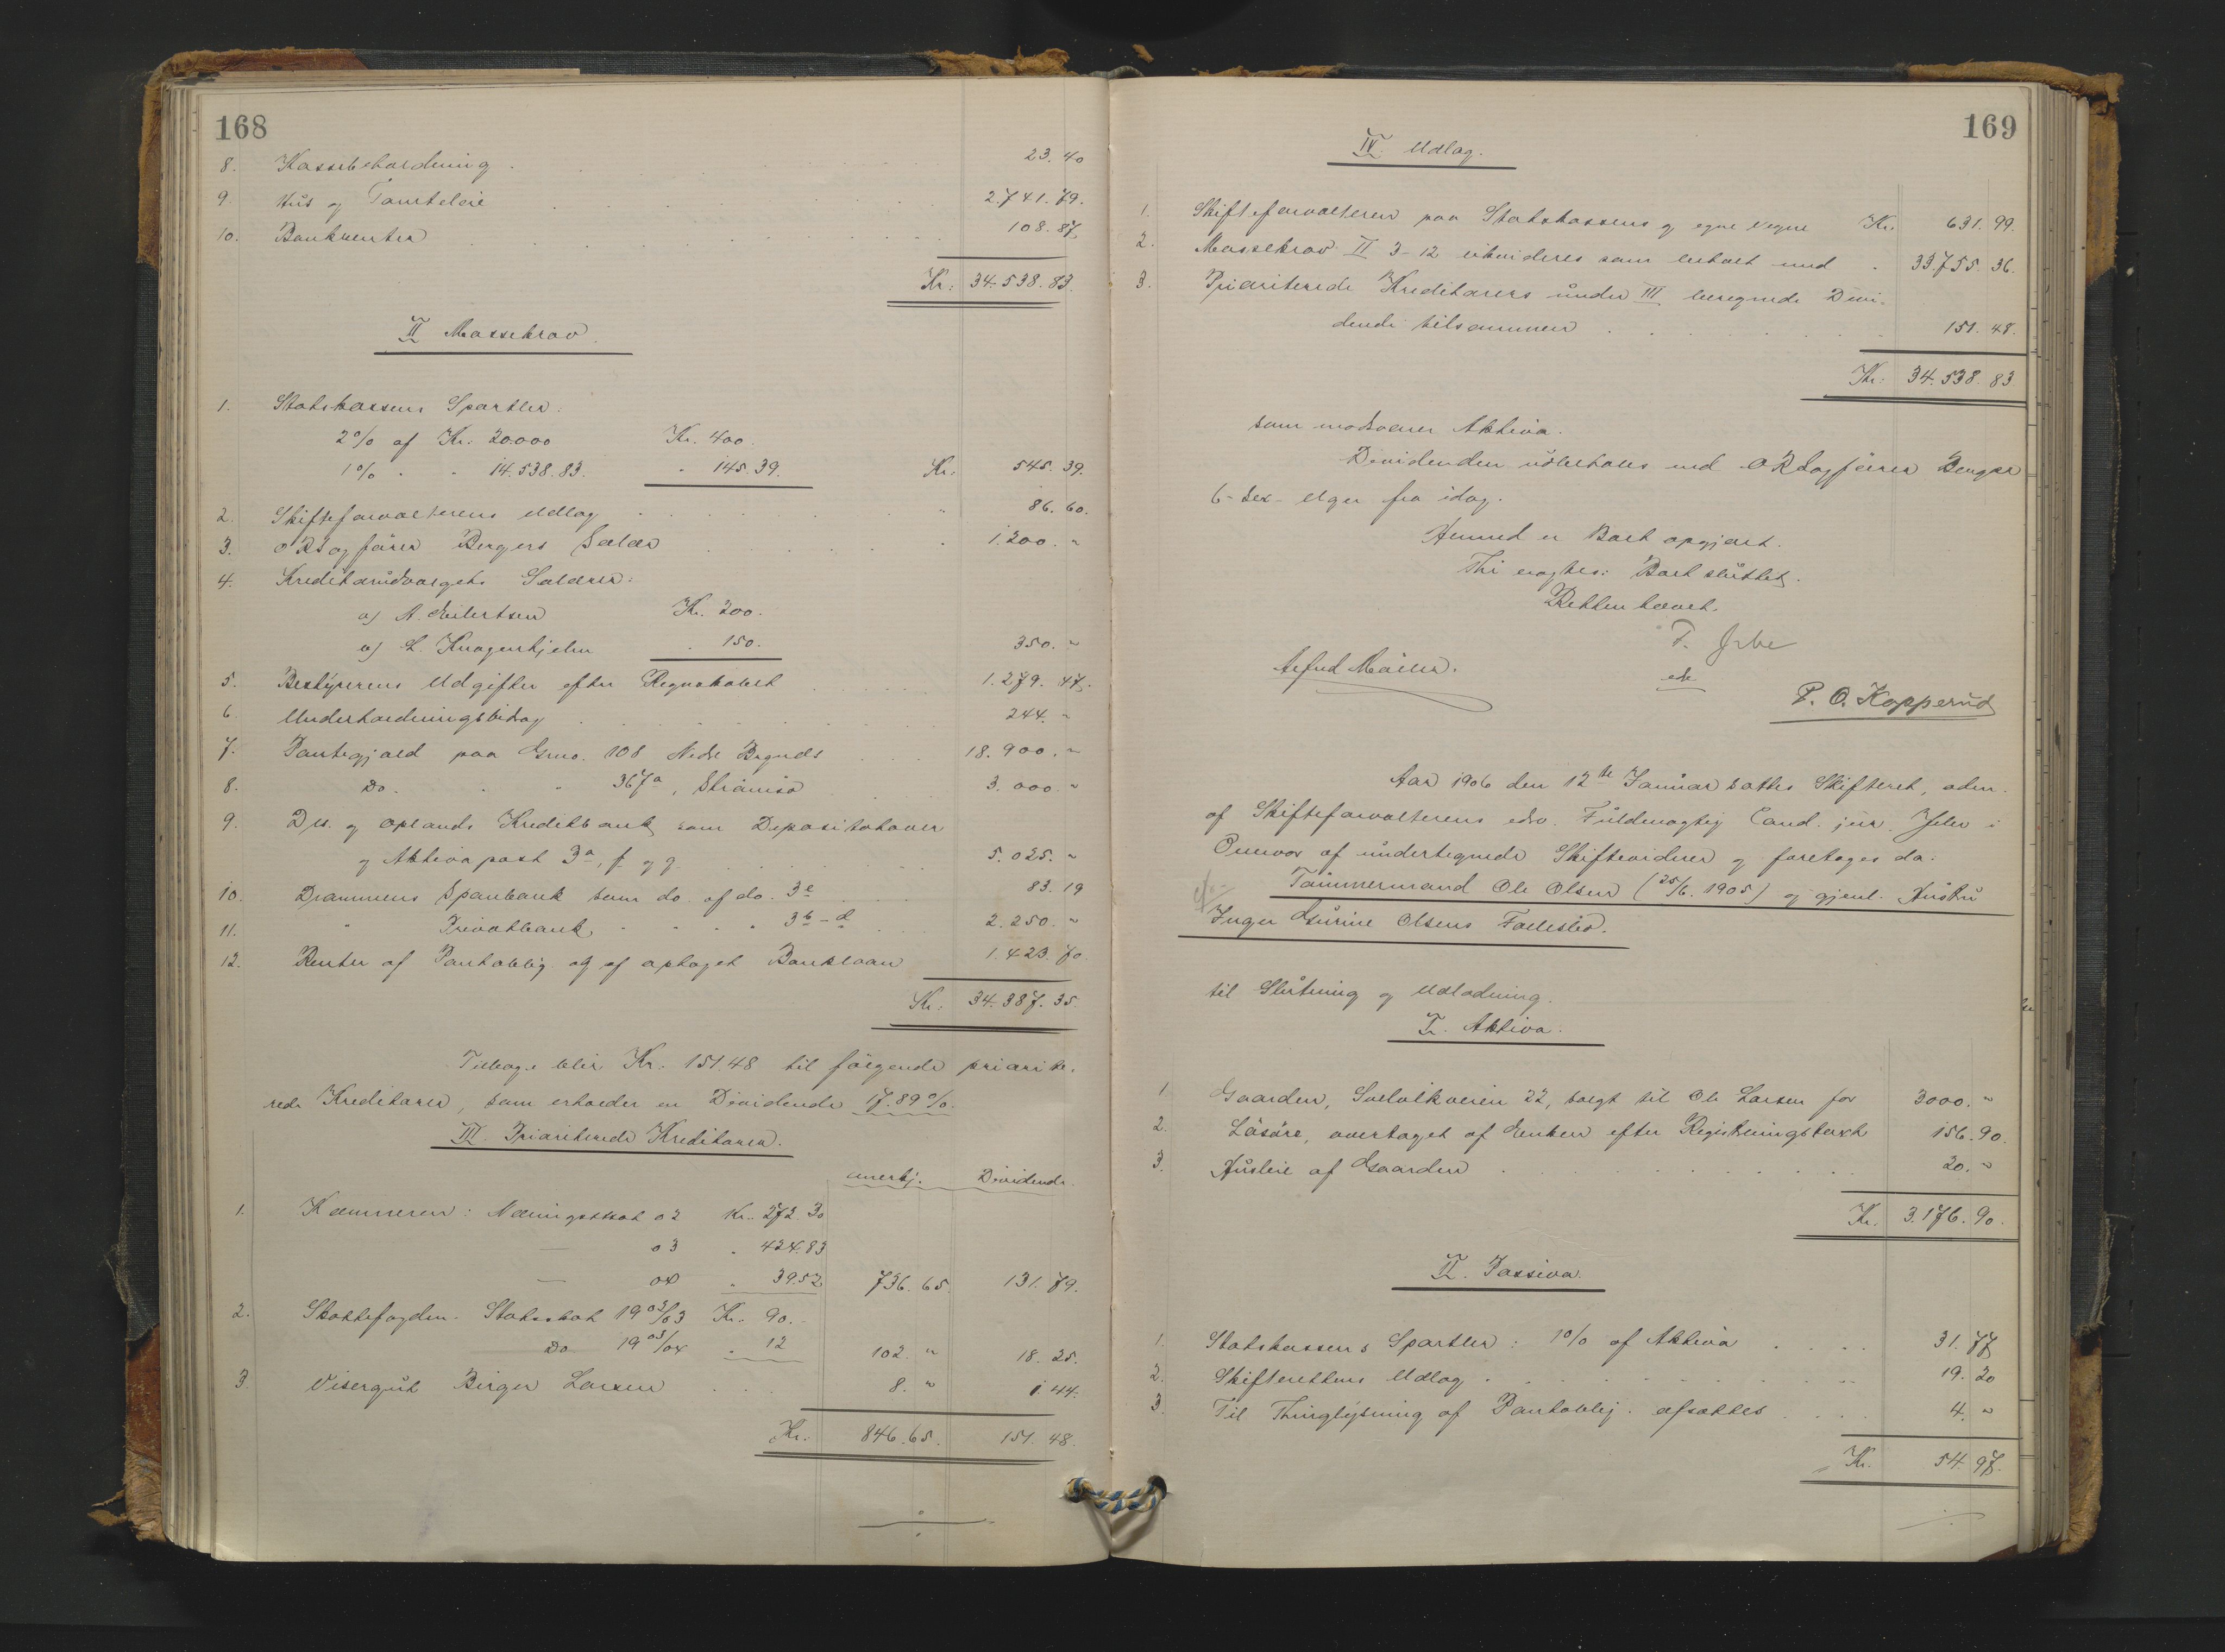 168
8. Kassebeholdning . . . . 23.40
9 Hus og Tomteleie . . . . 2.741.79.
10. Bankrenter . . . . 108.87.
Kr. 34.538.83.
II Massekrav.
1. Statskassens Sportler:
2% af Kr. 20.000 Kr. 400.
1% " " 14.538.83. " 145.39. Kr. 545.39.
2. Skifteforvalterens Udlæg . . . . " 86.60.
3. ORSagfører Bergers Salær . . . . " 1.200. "
4. Kreditorudvalgets Salærer:
a) A. Eilertsen Kr. 200.
b) L. Knagenhjelm " 150. 350. "
5. Bestyrerens Udgifter efter Regnskabet . . . . 1.279.47.
6. Underholdningsbidrag . . . . 244. "
7. Pantegjæld paa Grno. 108 Nedre . . . 18.900. "
8. Do. " " 367a, Strømsø . . 3.000. "
9. Drs. og Oplands Kreditbank som Depositohaver
og Aktiva post 3a, f og g. . . . . 5.025. "
10. Drammens Sparebank som do. af do. 3e . . . 83.19
11. " Privatbank " " " " 3b-d . . 2.250. "
12. Renter af Pantoblig. og af optaget Banklaan 1.423.70.
Kr. 34.387.35.
Tilbage blir Kr. 151.48 til følgende priorite-
rede Kreditorer, som erholder en Dividende 17.89%.
III. Prioriterede Kreditorer.
anerkj. Dividende.
1. Kæmneren: Næringsskat 02 Kr. 272.30
— 03 " 424.83
— 04 " 39.52 736.65. 131.79.
2. Skattefogden. Statsskat 1902/03 Kr. 90.
Do 1903/04 " 12 102. " 18.25.
3 Visergut Birger Larsen . . . 8. " 1.44.
Kr. 846.65. 151.48.
169
IV. Udlæg.
1. Skifteforvalteren paa Statskassens og egne Vegne Kr. 631.99.
2. Massekrav II 3-12 likvideres som betalt med . 33.755.36.
3. Prioriterede Kreditorers under III beregnede Divi-
dende tilsammen . . . . 151.48.
Kr. 34.538.83
som modsvarer Aktiva.
Dividenden udbetales ved ORSagfører Berger
6 - sex - Uger fra idag.
Hermed er Boet opgjort.
Thi eragtes: Boet sluttet.
Retten hævet.
Arfud Møller.
P. O. Kopperud
Aar 1906 den 12te Januar sattes Skifteret, adm.
af Skifteforvalterens edsv. Fuldmægtig Cand. jur. i
Overvær af undertegnede Skiftevidner og foretages da:
Tømmermand Ole Olsen (25/6. 1905) og gjenl. Hustru
Inger Gurine Olsens Fællesbo.
til Slutning og Udlodning.
I. Aktiva.
1. Gaarden, Svelvikveien 22, solgt til Ole Larsen for 3000. "
2. Løsøre, overtaget af Enken efter Registreringstaxt 156.90.
3. Husleie af Gaarden . . . . 20. "
Kr. 3.176.90.
II. Passiva.
1. Statskassens Sportler: 1% af Aktiva . . . . 31.77
2. Skifterettens Udlæg . . . . 19.20
3. Til Thinglysning af Pantoblig. afsættes . . . . 4. "
Kr. 54.97.